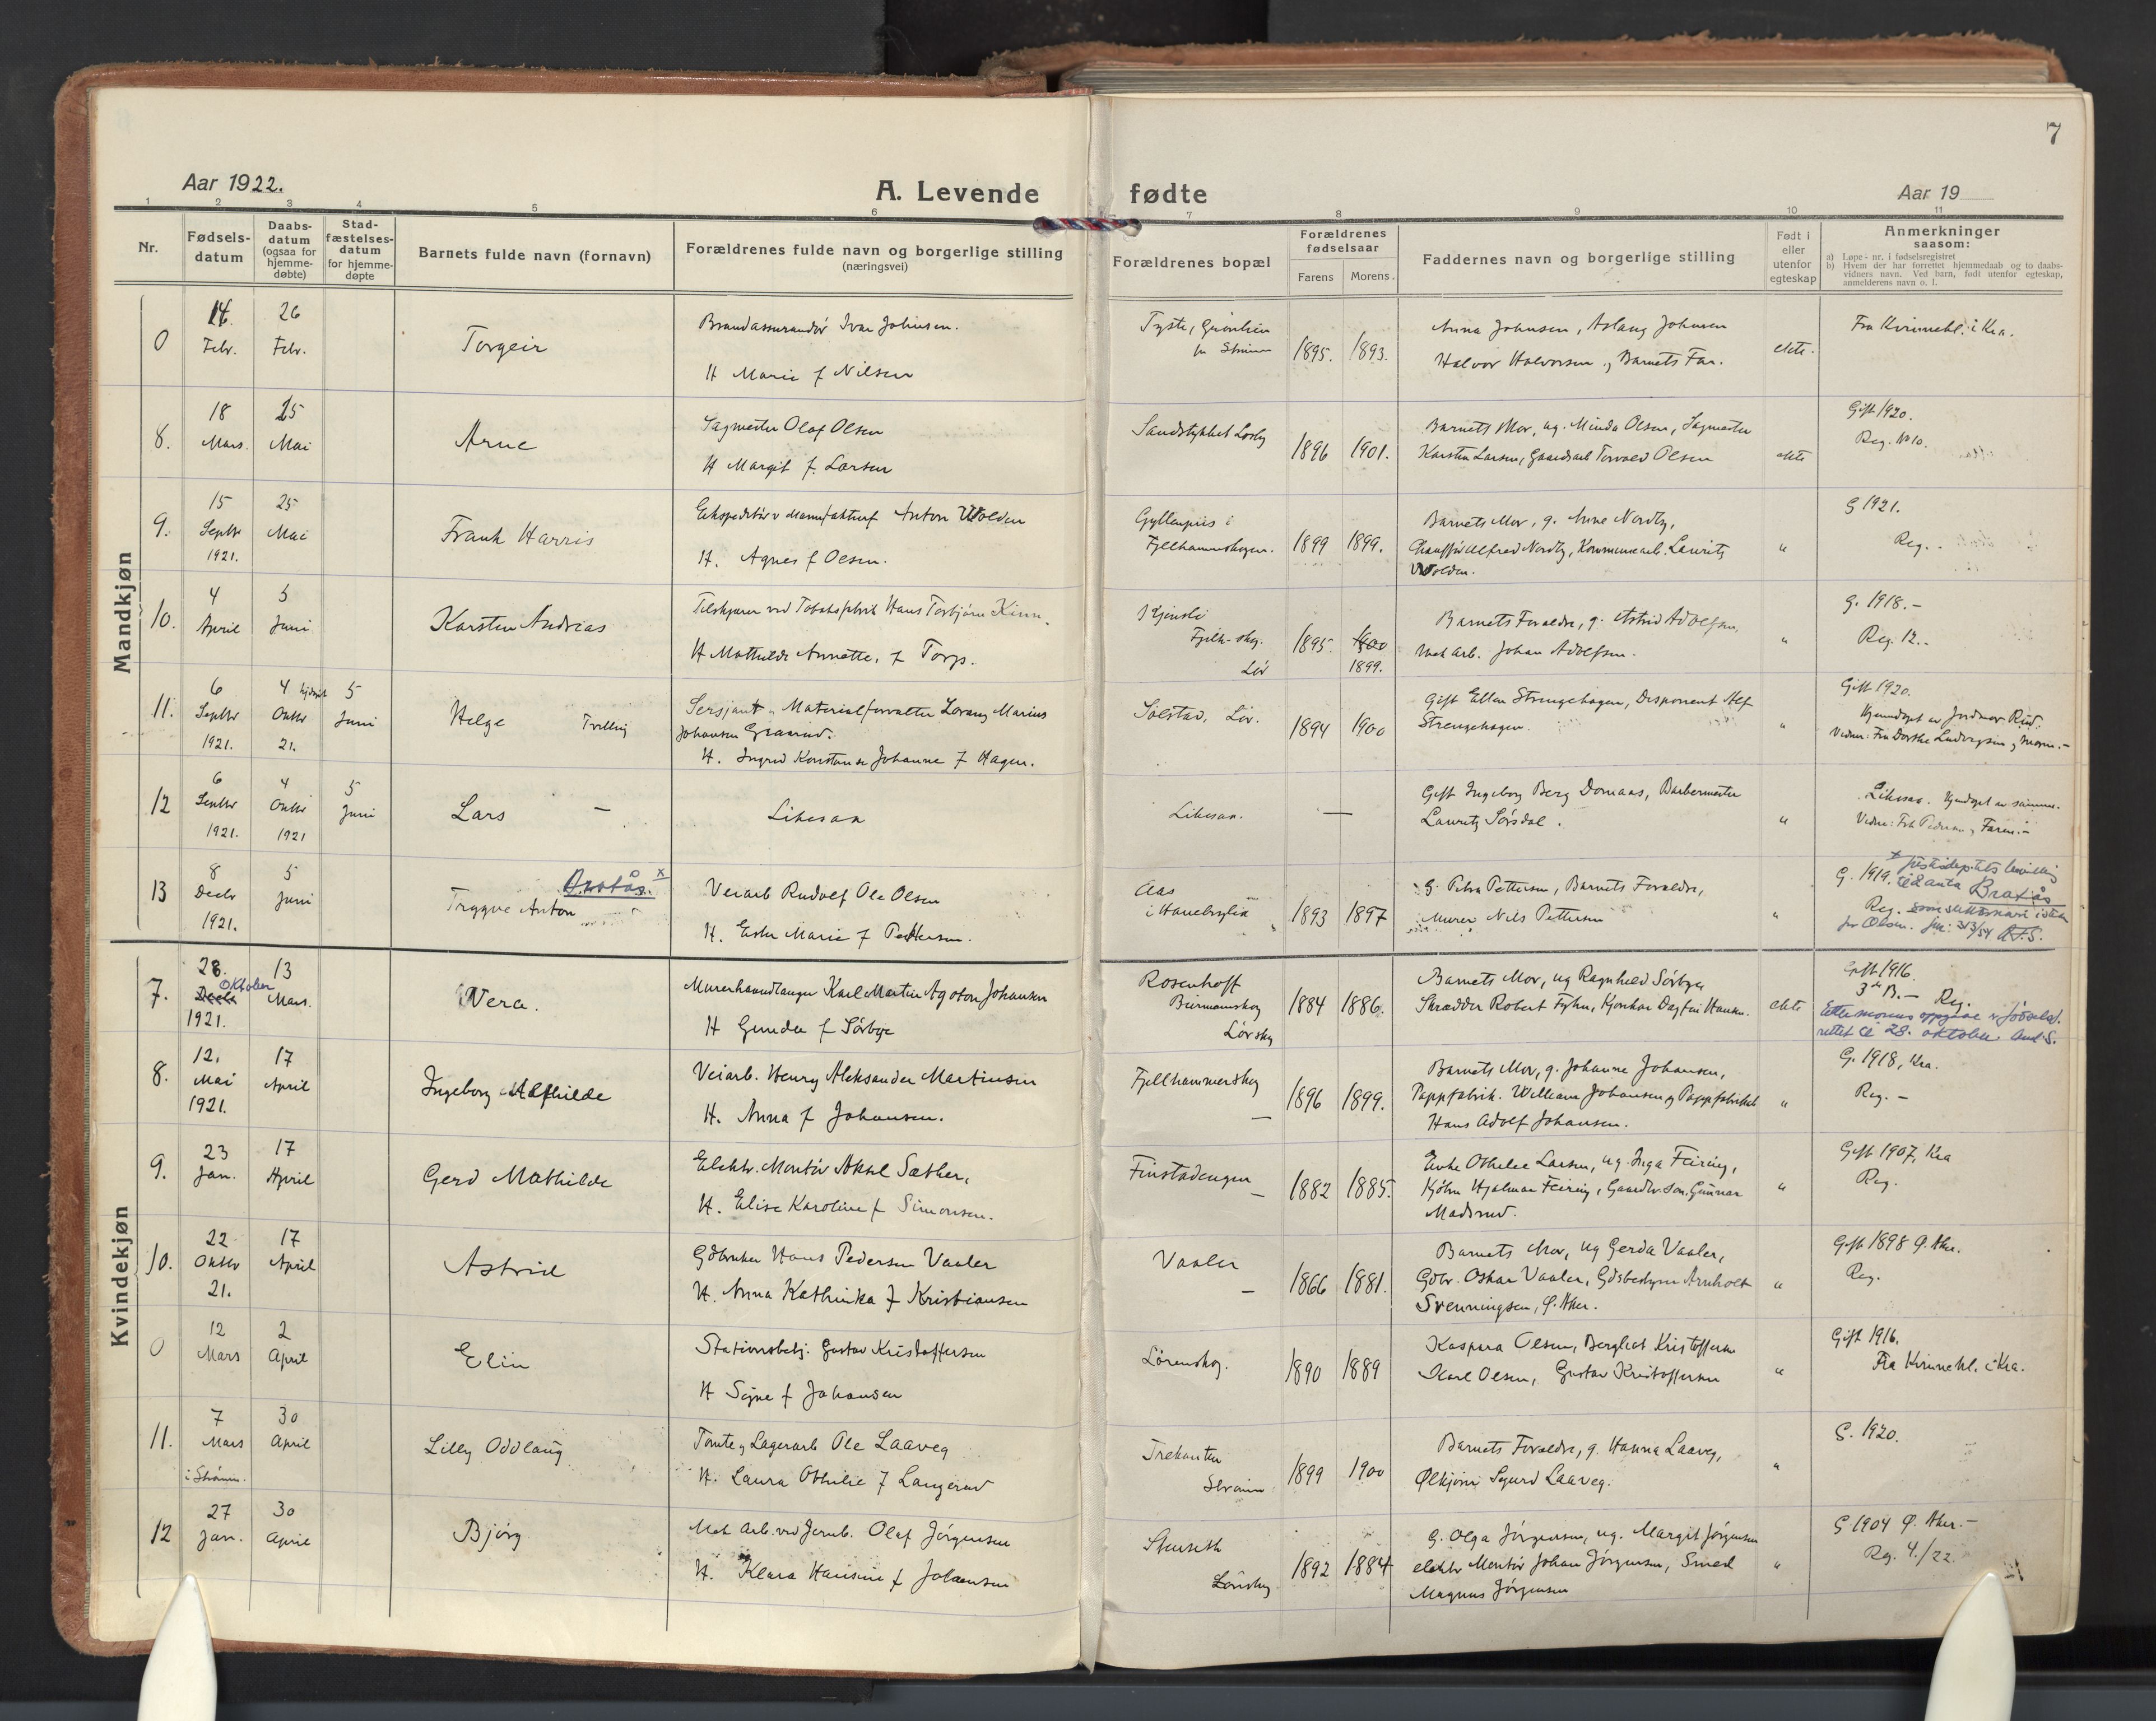 7
Aar 1922.
A. Levende fødte
Aar 19
1 2 3 4 5 6 7 8 9 10 11
Nr.
Fødsels-
datum
Daabs-
datum
(ogsaa for
hjemme-
døbte)
Stad-
fæstelses-
datum
for hjemme-
døpte
Barnets fulde navn (fornavn)
Forældrenes fulde navn og borgerlige stilling
(næringsvei)
Forældrenes bopæl
Forældrenes
fødselsaar
Farens Morens.
Faddernes navn og borgerlige stilling
Født i
eller
utenfor
egteskap
Anmerkninger
saasom:
a) Løpe-nr. i fødselsregistret
b) Hvem der har forrettet hjemmedaab og to daabs-
vidners navn. Ved barn, født utenfor egteskap,
anmelderens navn o. l.
Mandkjøn
0
14.
Febr.
26
Febr.
Torgeir
Brandassurandør Ivar Johnsen.
H Marie f Nilsen
1895. 1893.
Anna Johnsen, Aslaug Johnsen
Halvor Halvorsen, Barnets Far.
ekte.
Fra Kvinnekl. i Kra.
8.
18
Mars.
25
Mai
Arne
Sagmester Olaf Olsen
H Margit f. Larsen
Sandstykket Losby
1896 1901.
Barnets Mor, ug. Minda Olsen, Sagmester
Karsten Larsen, Gaardsarb Torvald Olsen
ekte
Gift 1920.
Reg. No 10.
9.
15
Septbr
1921.
25
Mai
Frank Harris
Ekspeditør v Manufakturf Anton Wolden
H. Agnes f Olsen.
Fjellhammerskogen.
1899 1899.
Barnets Mor, g. Anne Nordby,
Chauffør Alfred Nordby, Kommunearb. Lauritz
Wolden.
"
G 1921.
Reg.
10.
4
April
5
Juni
Karsten Andreas
Tilskjærer ved Tobaksfabrik Hans Torbjørn Kinn.
H Mathilde Annette, f Torp.
Fjellh-skog.
Lør
1895. 1900
1899.
Barnets Foreldre, g. Astrid Adolfsen,
Mek arb. Johan Adolfsen.
"
g. 1918.-
Reg. 12.-
11.
6
Septbr
1921.
4 hjdøpt
Oktbr
21.
5
Juni
Helge Tvilling
Sersjant, Materialforvalter Lorang Marius
Johansen Granrud.
H. Ingrid Konstanse Johanne f Hagen.
Solstad, Lør.
1894 1900
Gift Ellen Strengehagen, Disponent Alf
Strengehagen.
"
Gift 1920.
Hjemdøpt av Jordmor Rud.
Vidner: Fru Dorthe Ludvigsen, Moren.-
12
6
Septbr
1921.
4
Oktbr
1921
5
Juni
Lars —
Likesaa
Likesaa.
—
Gift Ingeborg Berg Domaas, Barbermester
Lauritz Sørsdal.
"
Likesaa. Hjemdøpt av samme.
Vidner: Frk Pedersen, Faren.-
13
8
Decbr
1921.
5
Juni
Tryggve Anton
x
Veiarb Rudolf Ole Olsen
H. Ester Marie f Pettersen.
Aas
i Haneborglia
1893 1897
G. Petra Pettersen, Barnets Foreldre,
Murer Nils Pettersen
"
G. 1919.
Reg.
x
til å anta Bratås
som slektsnavn i sted
for Olsen.
Kvindekjøn
7.
28.
Decbr
oktober
1921.
13
Mars.
Vera.
Murerhaandlanger Karl Martin Agaton Johansen
H Gunda f Sørbye
Rosenhoff
Lørskg
1884 1886.
Barnets Mor, ug Ragnhild Sørbye
Skrædder Robert Fyhn, Kjørekar Dagfin Hansen.
ekte
Gift 1916.
3die B.- Reg.
Etter morens oppgave er fødseld.
rettet til 28. oktober.
8.
12.
Mai
1921.
17
April
Ingeborg Alfhilde
Veiarb. Henry Aleksander Martinsen
H. Anna f Johansen.
Fjellhammerskog
—
1896 1899.
Barnets Mor, g. Johanne Johansen,
Pappfabrik. William Johansen, Pappfabrikarb
Hans Adolf Johansen.
"
G. 1918, Kra.
Reg. -
9.
23
Jan.
17
April
Gerd Mathilde
Elektr. Montør Aksel Sæther,
H. Elise Karoline f Simonsen.
Finstadengen
—
1882 1885.
Enke Othilie Larsen, ug. Inga Feiring,
Kjøbm Hjalmar Feiring, Gaardbr. søn Gunnar
Madsrud.
"
Gift 1907, Kra
Reg.
10.
22
Oktbr
21.
17
April
Astrid
Gdbruker Hans Pedersen Vaaler
H. Anna Kathinka f Kristiansen
Vaaler
—
1866 1881.
Barnets Mor, ug Gerda Vaaler,
Gdbr. Oskar Vaaler, Gdsbestyrer Arnholt
Svenningsen, Ø. Aker.
"
Gift 1898 Ø. Aker.
Reg.
0
12
Mars
2
April
Elin
Stationsbetj. Gustav Kristoffersen
H Signe f Johansen
Lørenskog.
1890 1889
Kaspara Olsen, Bergliot Kristoffersen
Karl Olsen, Gustav Kristoffersen
"
Gift 1916.
Fra Kvinnekl. i Kra.
11.
7
Mars
i Strømm.
30
April
Lilly Oddlaug
Tomte, Lagerarb Ole Laaveg
H. Laura Othilie f Langerud
Trekanten
Strømm
1899 1900
Barnets Foreldre, g. Hanna Laaveg,
Ølkjører Sigurd Laaveg.
"
G. 1920.
12
27
Jan.
30
April
Bjørg
Mek Arb. ved Jernb. Olaf Jørgensen
H. Klara Hansine f Johansen
Lørenskog
1892 1884
G. Olga Jørgensen, ug. Margit Jørgensen
elektr Montør Johan Jørgensen, Smed
Magnus Jørgensen
"
G 1904 Ø. Aker.-
Reg. 4./22.